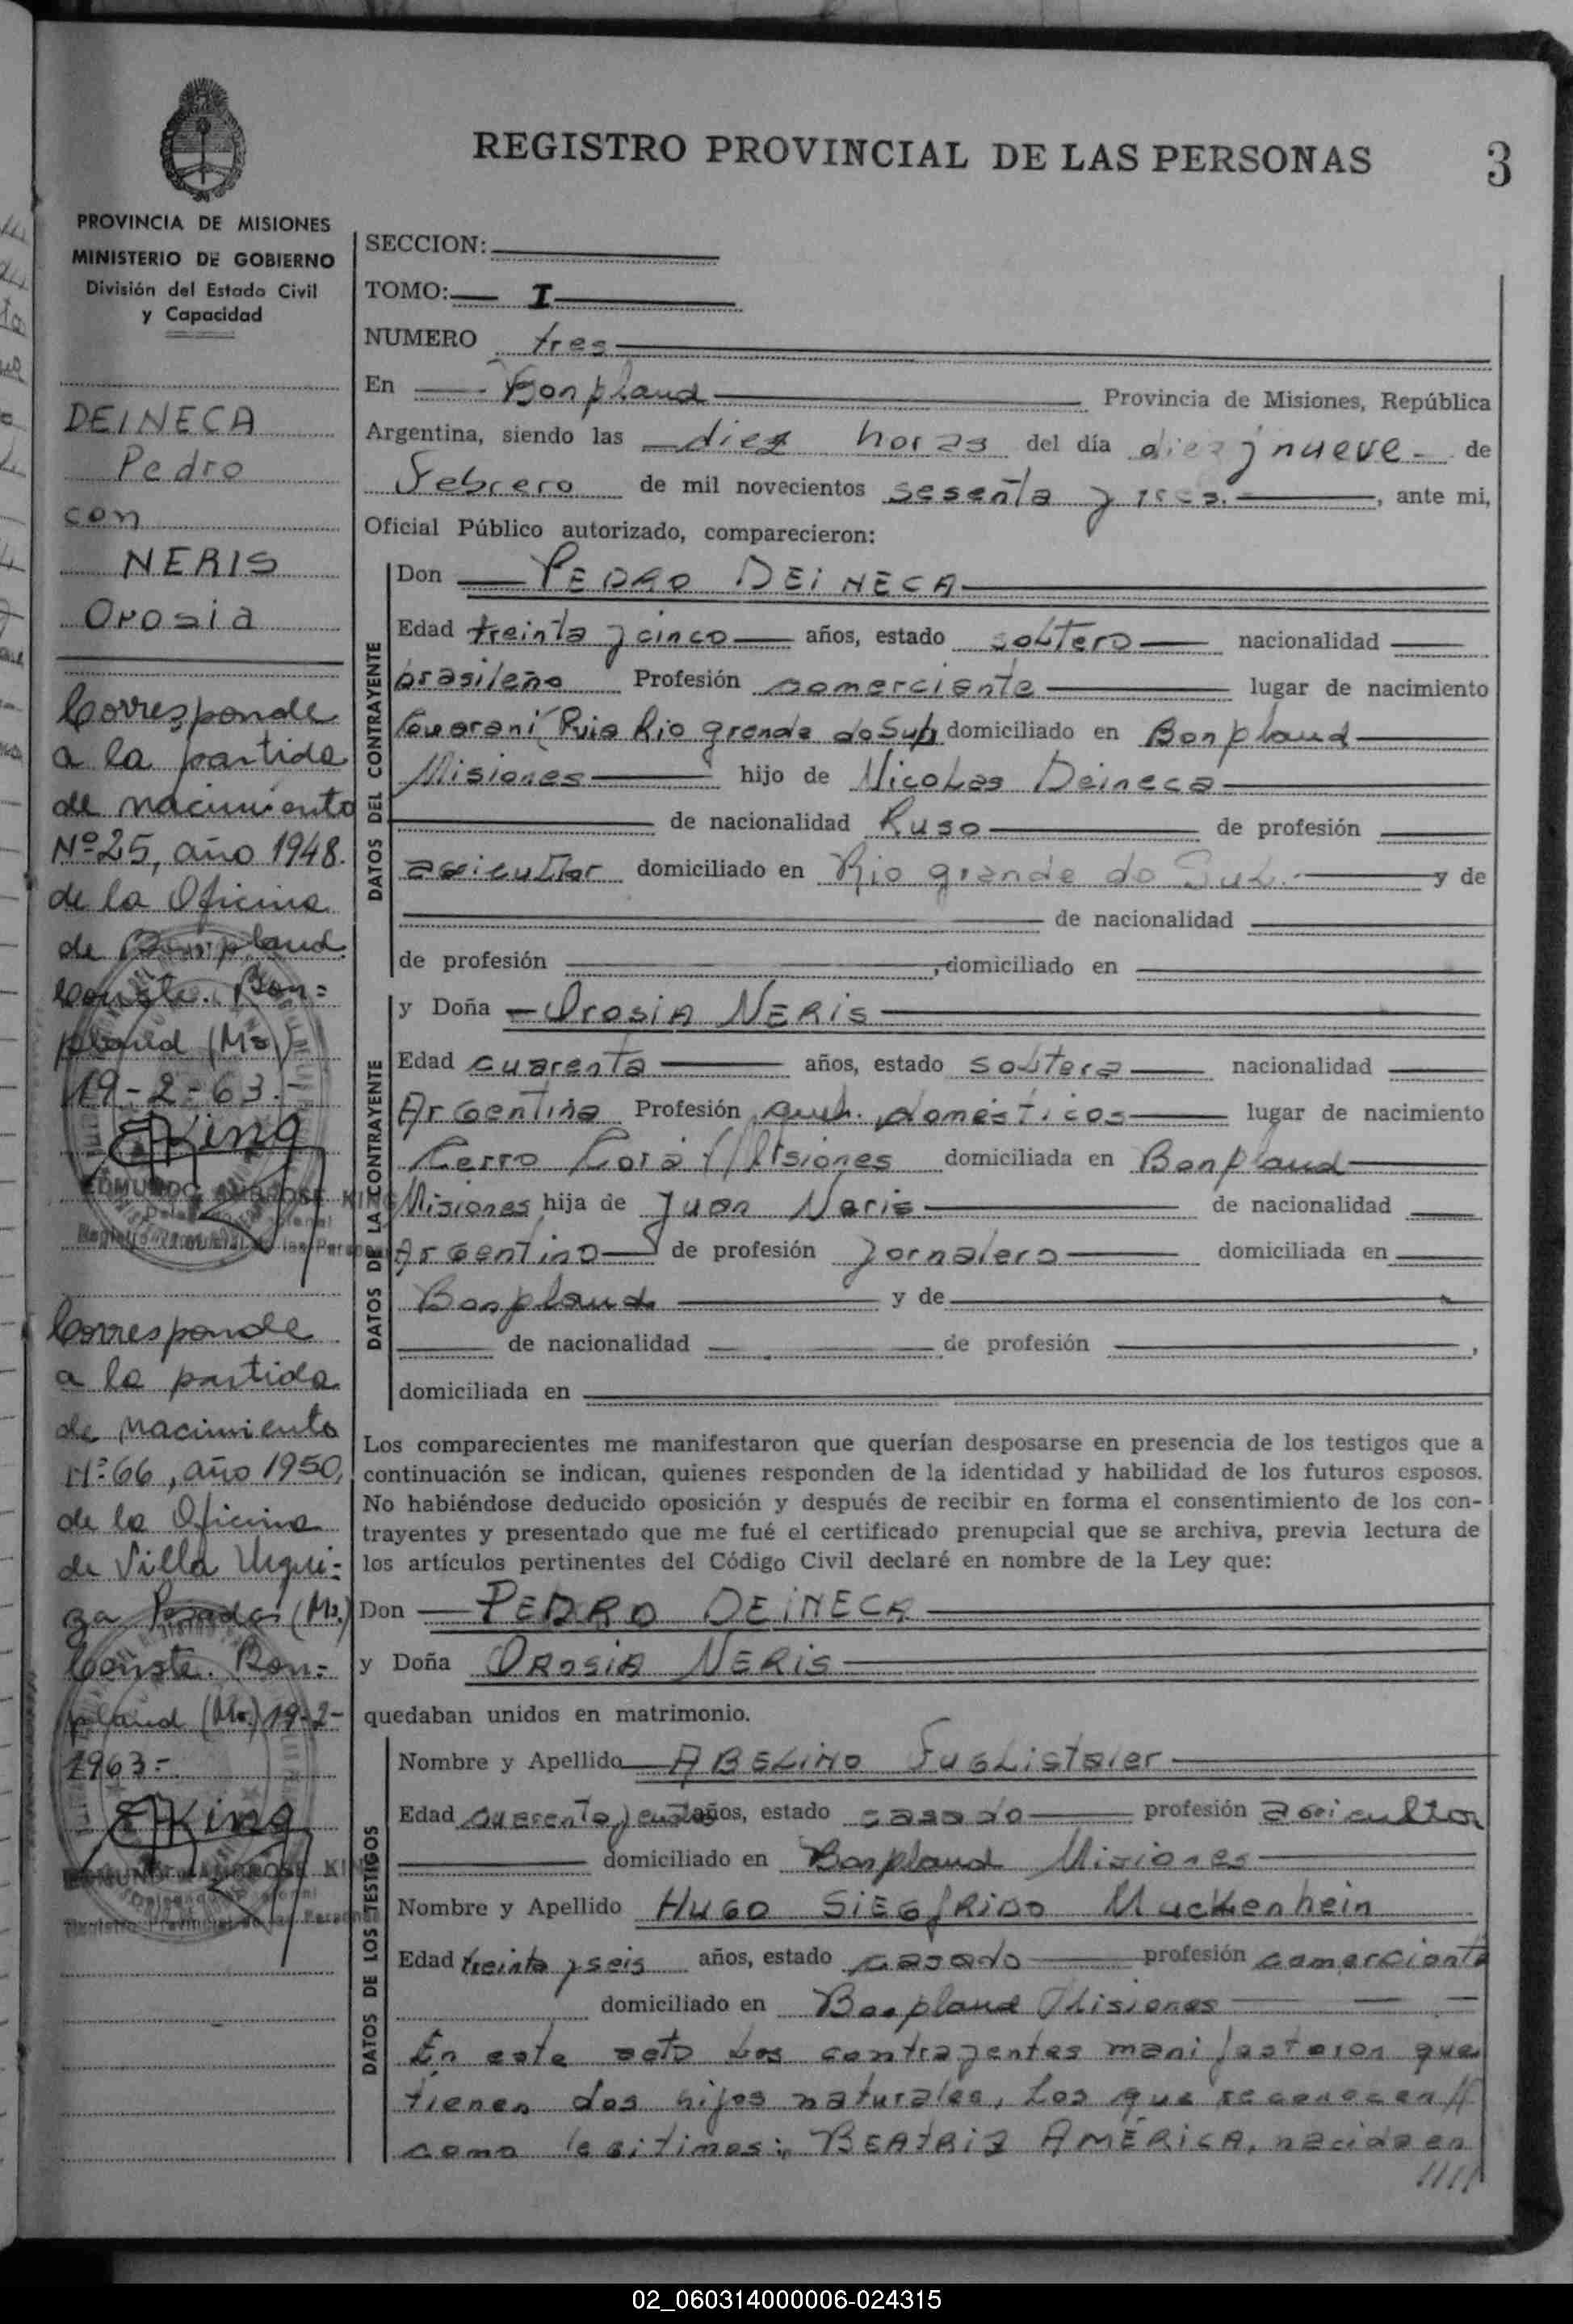 REGISTRO PROVINCIAL DE LAS PERSONAS
3
PROVINCIA DE MISIONES
MINISTERIO DE GOBIERNO
División del Estado Civil
y Capacidad
DEINECA
Pedro
con
NERIS
Orosia
Corresponde
a la partida
de nacimiento
Nº 25, año 1948.
de la Oficina
de Bonpland.
Conste. Bon=
pland (Ms.)
19-2-63.-
EKing
EDMUNDO AMBROSE KING
Registro Provincial de las Personas
Corresponde
a la partida
de nacimiento
Nº 66, año 1950,
de la Oficina
de Villa Urqui=
za Posadas (Ms.)
Conste. Bon=
pland (Ms.) 19-2-
1963=
EKing
EDMUNDO AMBROSE KING
Registro Provincial de las Personas
SECCION:
TOMO: I
NUMERO tres
En Bonpland Provincia de Misiones, República
Argentina, siendo las diez horas del día diez y nueve de
Febrero de mil novecientos sesenta y tres. , ante mi,
Oficial Público autorizado, comparecieron:
DATOS DEL CONTRAYENTE
Don PEDRO DEINECA
Edad treinta y cinco años, estado soltero nacionalidad
brasileño Profesión comerciante lugar de nacimiento
Guarani Rio grande do Sul domiciliado en Bonpland
Misiones hijo de Nicolas Deineca
de nacionalidad Ruso de profesión
agricultor domiciliado en Rio grande do Sul. y de
de nacionalidad
de profesión , domiciliado en
DATOS DE LA CONTRAYENTE
y Doña Orosia NERIS
Edad cuarenta años, estado soltera nacionalidad
Argentina Profesión queh. domésticos lugar de nacimiento
Cerro Corá Misiones domiciliada en Bonpland
Misiones hija de Juan Neris de nacionalidad
Argentino de profesión jornalero domiciliada en
Bonpland y de
de nacionalidad de profesión ,
domiciliada en
Los comparecientes me manifestaron que querían desposarse en presencia de los testigos que a
continuación se indican, quienes responden de la identidad y habilidad de los futuros esposos.
No habiéndose deducido oposición y después de recibir en forma el consentimiento de los con-
trayentes y presentado que me fué el certificado prenupcial que se archiva, previa lectura de
los artículos pertinentes del Código Civil declaré en nombre de la Ley que:
Don PEDRO DEINECA
y Doña OROSIA NERIS
quedaban unidos en matrimonio.
DATOS DE LOS TESTIGOS
Nombre y Apellido ABELINO FUGLISTALER
Edad cuarenta y años, estado casado profesión agricultor
domiciliado en Bonpland Misiones
Nombre y Apellido HUGO SIEGFRIDO Muckenhein
Edad treinta y seis años, estado casado profesión comerciante
domiciliado en Bonpland Misiones
En este acto los contrayentes manifestaron que
tienen dos hijos naturales, los que reconocen
como legitimos: BEATRIZ AMÉRICA, nacida en
////
02_060314000006-024315